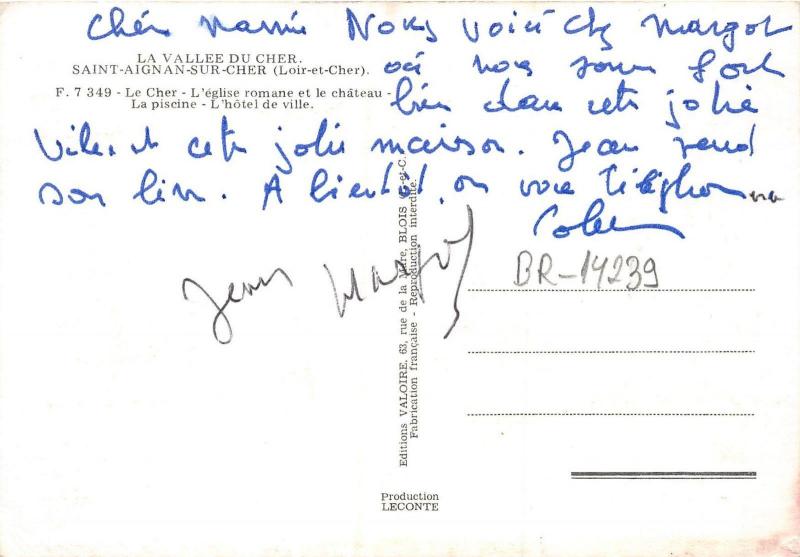 Chère Mamie Nous voici chez Margot
LA VALLEE DU CHER.
SAINT-AIGNAN-SUR-CHER (Loir-et-Cher).
où nous somm fort
F. 7 349 - Le Cher - L'église romane et le château -
La piscine - L'hôtel de ville.
bien dans cette jolie
ville et cette jolie maison. Jean rend
son livre. A bientôt, on vous téléphonera
Jean Margot
BR-14239
Editions VALOIRE, 63, rue de la Mare, BLOIS (L.-et-C.
Fabrication française - Reproduction interdite.
Production
LECONTE